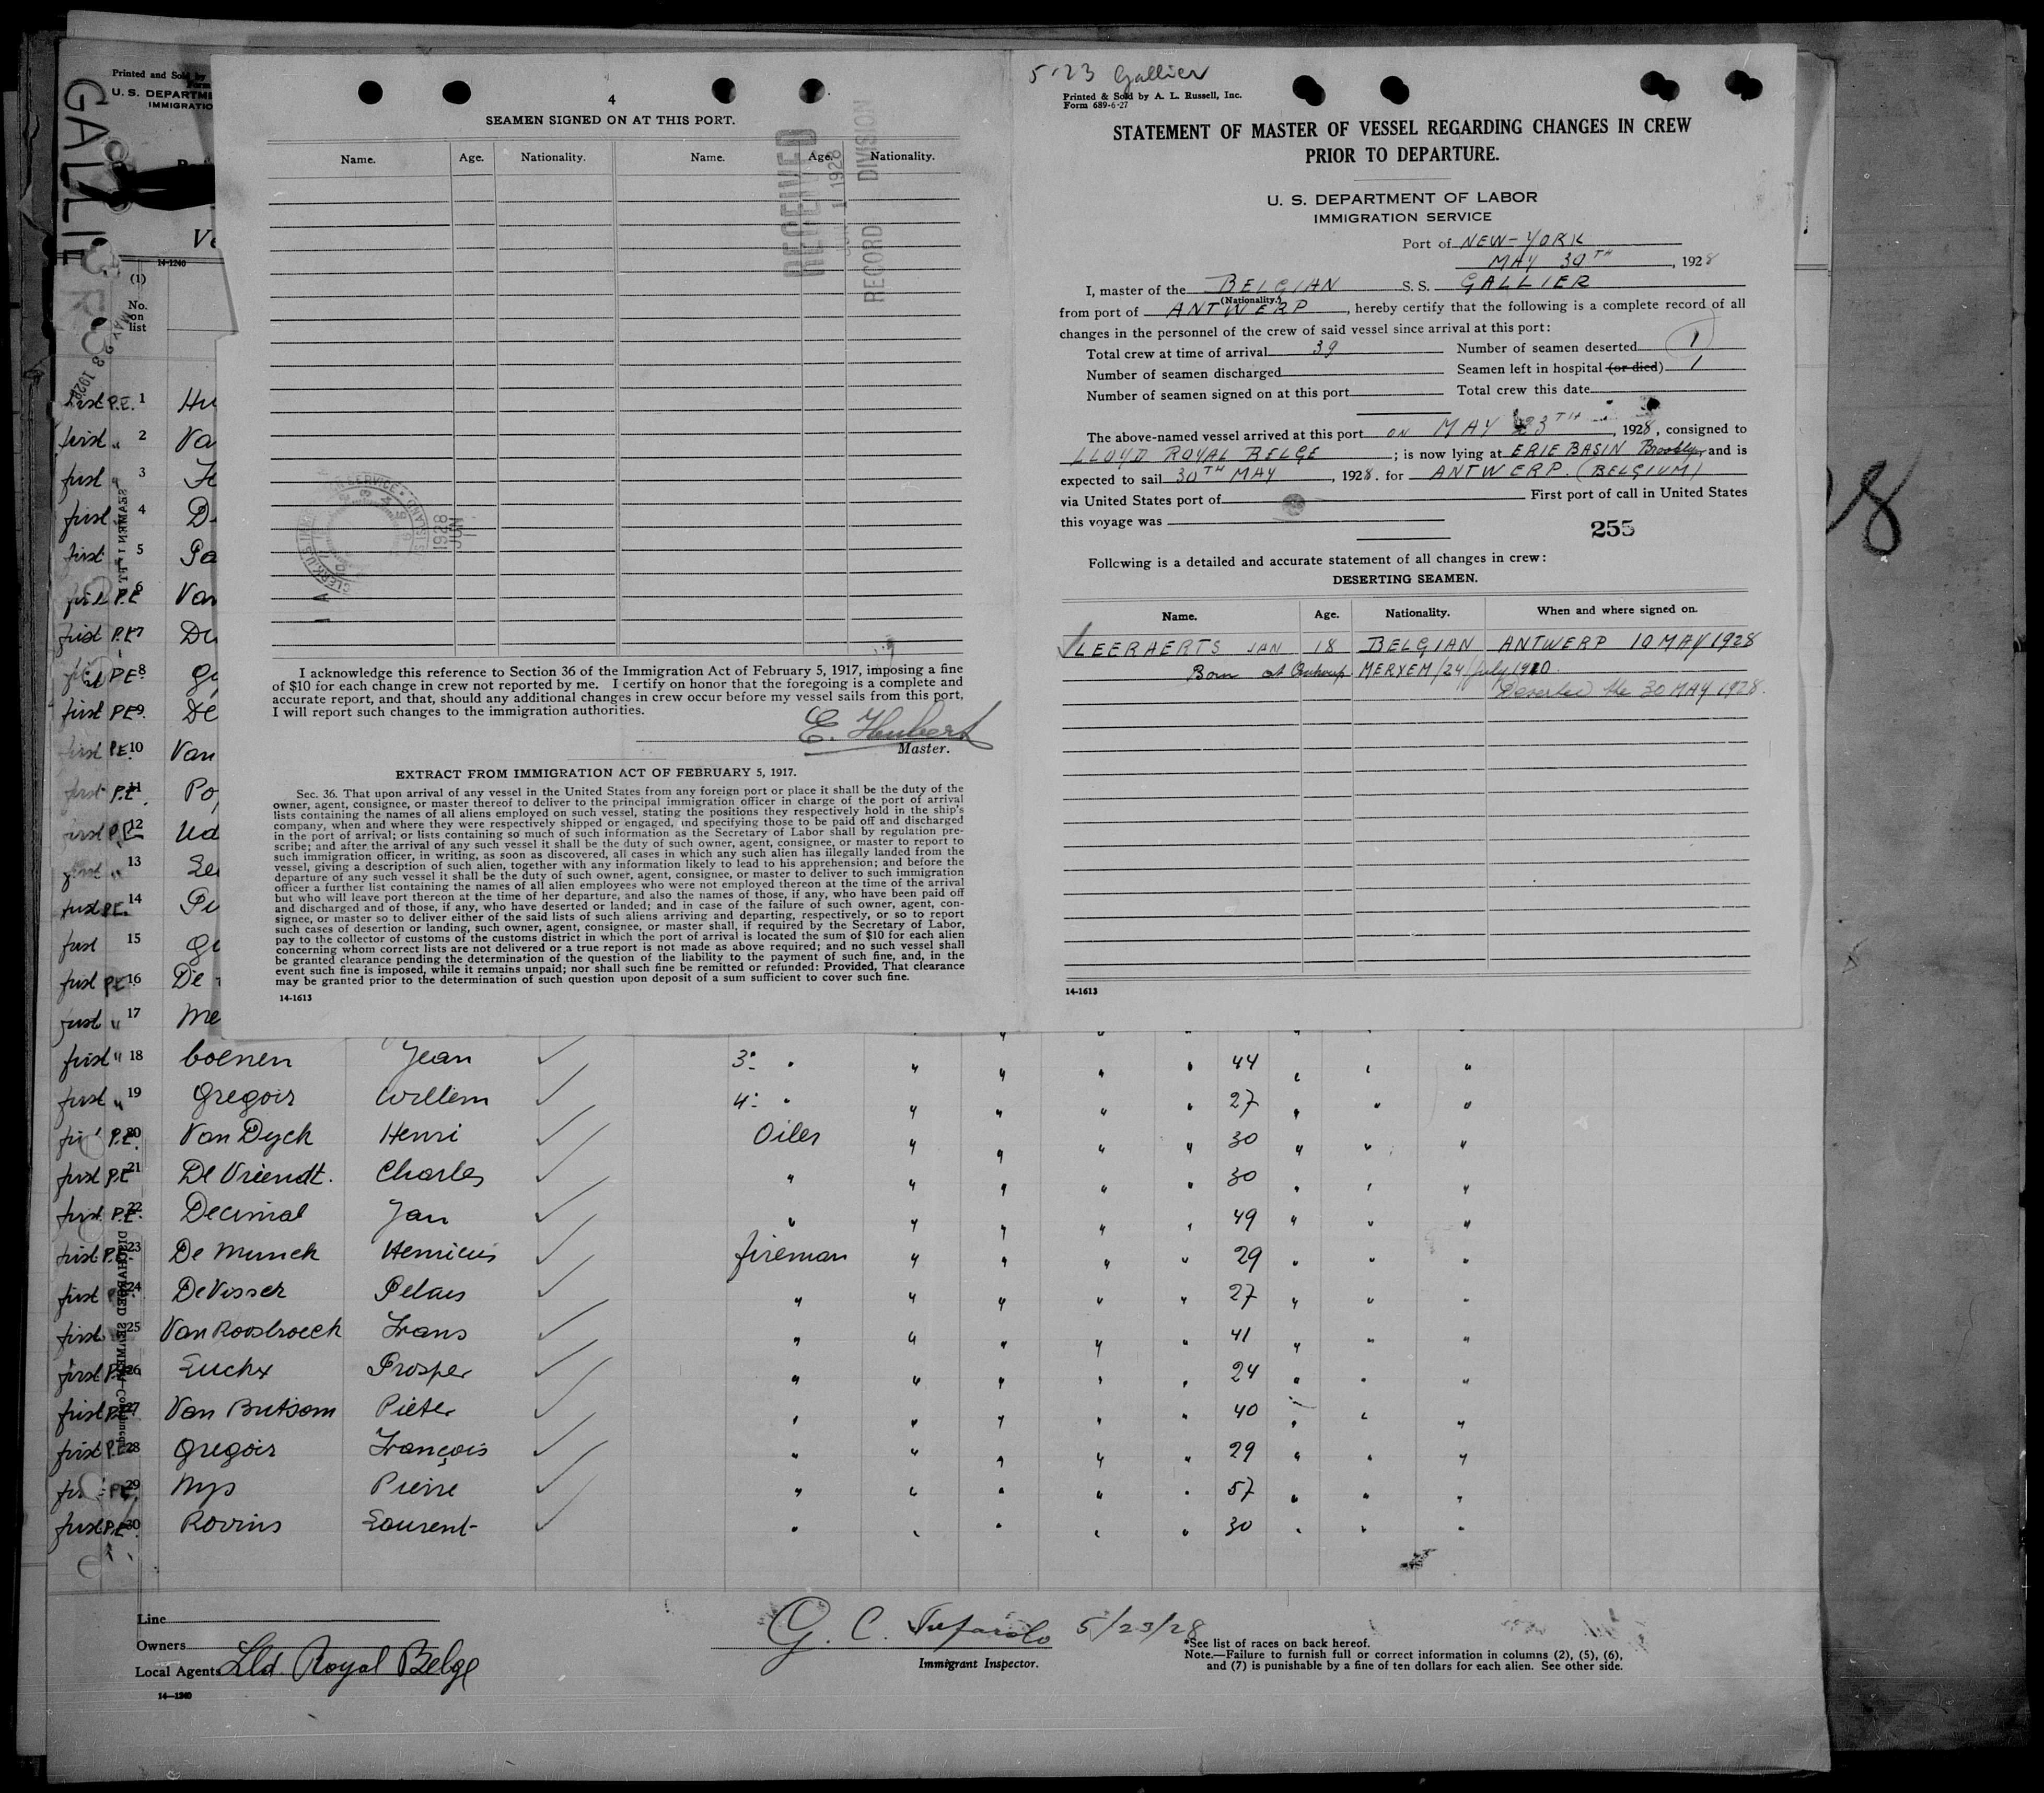 GALLIE
Printed and Sold by
Form
U. S. DEPARTME
IMMIGRATIO
Ve
14-1240
(1)
No.
on
list
4
SEAMEN SIGNED ON AT THIS PORT.
Name. Age. Nationality. Name. Age. Nationality.
RECEIVED
1 1928
RECORD DIVISION
1928
JUN
I acknowledge this reference to Section 36 of the Immigration Act of February 5, 1917, imposing a fine
of $10 for each change in crew not reported by me. I certify on honor that the foregoing is a complete and
accurate report, and that, should any additional changes in crew occur before my vessel sails from this port,
I will report such changes to the immigration authorities.
E. Hubert
Master.
EXTRACT FROM IMMIGRATION ACT OF FEBRUARY 5, 1917.
Sec. 36. That upon arrival of any vessel in the United States from any foreign port or place it shall be the duty of the
owner, agent, consignee, or master thereof to deliver to the principal immigration officer in charge of the port of arrival
lists containing the names of all aliens employed on such vessel, stating the positions they respectively hold in the ship's
company, when and where they were respectively shipped or engaged, and specifying those to be paid off and discharged
in the port of arrival; or lists containing so much of such information as the Secretary of Labor shall by regulation pre-
scribe; and after the arrival of any such vessel it shall be the duty of such owner, agent, consignee, or master to report to
such immigration officer, in writing, as soon as discovered, all cases in which any such alien has illegally landed from the
vessel, giving a description of such alien, together with any information likely to lead to his apprehension; and before the
departure of any such vessel it shall be the duty of such owner, agent, consignee, or master to deliver to such immigration
officer a further list containing the names of all alien employees who were not employed thereon at the time of the arrival
but who will leave port thereon at the time of her departure, and also the names of those, if any, who have been paid off
and discharged and of those, if any, who have deserted or landed; and in case of the failure of such owner, agent, con-
signee, or master so to deliver either of the said lists of such aliens arriving and departing, respectively, or so to report
such cases of desertion or landing, such owner, agent, consignee, or master shall, if required by the Secretary of Labor,
pay to the collector of customs of the customs district in which the port of arrival is located the sum of $10 for each alien
concerning whom correct lists are not delivered or a true report is not made as above required; and no such vessel shall
be granted clearance pending the determination of the question of the liability to the payment of such fine, and, in the
event such fine is imposed, while it remains unpaid; nor shall such fine be remitted or refunded: Provided, That clearance
may be granted prior to the determination of such question upon deposit of a sum sufficient to cover such fine.
14-1613
5-23 Gallier
Printed & Sold by A. L. Russell, Inc.
Form 689-6-27
STATEMENT OF MASTER OF VESSEL REGARDING CHANGES IN CREW
PRIOR TO DEPARTURE.
U. S. DEPARTMENT OF LABOR
IMMIGRATION SERVICE
Port of NEW-YORK
MAY 30TH, 1928
I, master of the BELGIAN S. S. GALLIER
(Nationality.)
from port of ANTWERP, hereby certify that the following is a complete record of all
changes in the personnel of the crew of said vessel since arrival at this port:
Total crew at time of arrival 39 Number of seamen deserted 1
Number of seamen discharged Seamen left in hospital (or died) 1
Number of seamen signed on at this port Total crew this date
The above-named vessel arrived at this port ON MAY 23TH, 1928, consigned to
LLOYD ROYAL BELGE; is now lying at ERIE BASIN Brooklyn and is
expected to sail 30TH MAY, 1928. for ANTWERP. (BELGIUM)
via United States port of First port of call in United States
this voyage was
255
Following is a detailed and accurate statement of all changes in crew:
DESERTING SEAMEN.
Name. Age. Nationality. When and where signed on.
LEERAERTS JAN 18 BELGIAN ANTWERP 10 MAY 1928
Born at MERXEM/24 July 1910.
Deserted the 30 MAY 1928.
14-1613
first P.E. 1 Hu
first " 2 Va
first " 3
first 4 D
first 5 Pa
first P.E 6 Van
first P.E 7 De
P.E 8 Gi
first P.E 9. De
first P.E. 10 Van
first P.E 11 Po
first P.E 12 Ud
first " 13 Le
first P.E. 14 Pi
first 15 Gi
first P.E 16 De
first " 17 Me
first " 18 Coenen Jean ✓ 3: " " " " " 44 " " "
first " 19 Gregoir Willem ✓ 4: " " " " " 27 " " "
P.E. 20 Van Dyck Henri ✓ Oiler " " " " 30 " " "
first P.E 21 De Vriendt. Charles ✓ " " " " " 30 " " "
first P.E. 22 Decimal Jan ✓ " " " " " 49 " " "
first P.E. 23 De Munck Henricus ✓ fireman " " " " 29 " " "
first 24 De Visser Pelais ✓ " " " " " 27 " " "
first 25 Van Roosbroeck Frans ✓ " " " " " 41 " " "
first P.E. 26 Luckx Prosper ✓ " " " " " 24 " " "
first P.E. 27 Van Butsom Pieter ✓ " " " " " 40 " " "
first P.E. 28 Gregoir François ✓ " " " " " 29 " " "
P.E. 29 Nys Pierre ✓ " " " " " 57 " " "
first P.E. 30 Rovins Laurent ✓ " " " " " 30 " " "
Line
Owners
Local Agents Lld. Royal Belge
14—1240
G. C. Tufarolo 5/23/28
Immigrant Inspector.
*See list of races on back hereof.
Note.—Failure to furnish full or correct information in columns (2), (5), (6),
and (7) is punishable by a fine of ten dollars for each alien. See other side.
8